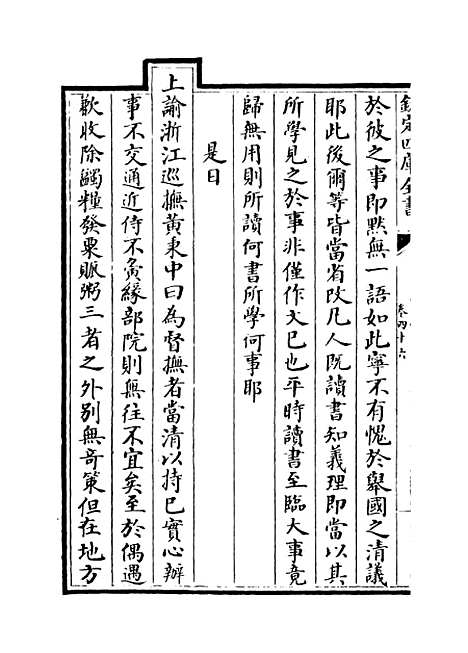 欽定四庫全書
卷四十六
於彼之事即默無一語如此寧不有愧於舉國之清議
耶此後爾等皆當省改凡人既讀書知義理即當以其
所學見之於事非僅作文已也平時讀書至臨大事竟
歸無用則所讀何書所學何事耶
是日
上諭浙江巡撫黃秉中曰為督撫者當清以持已實心辦
事不交通近侍不夤緣部院則無往不宜矣至於偶遇
歉收除蠲糧發粟賑粥三者之外別無奇策但在地方